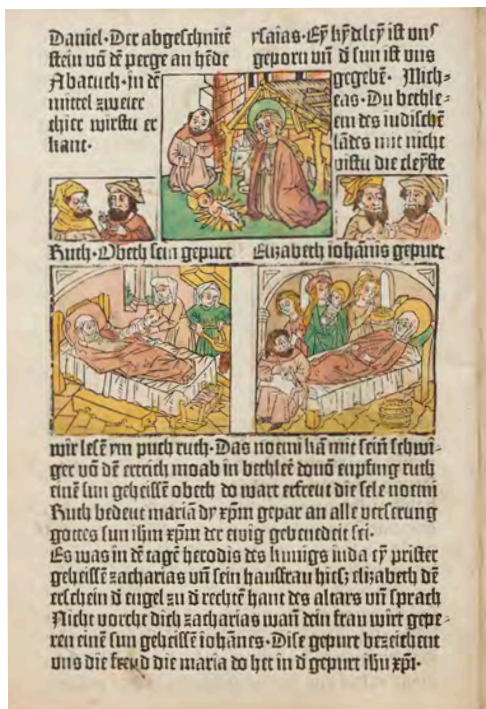 Daniel·Der abgeschnitē
stein vō dē perge an hēde
Abacuch·in dē
mittel zweier
thier wirstu er
kant·
ysaias·Eỹ kỹdleỹ ist unſ
geporn uñ d̄ sun ist uns
gegebē· Mich⸗
eas·Du bethle⸗
em des iudischē
lādes mit nicht
pistu die cleÿste
Ruth·Obeth sein gepurt
Elizabeth iohānis gepurt
wir lesē ym puch ruth·Das noemi kā mit seiñ schwi⸗
ger vō dē ertrich moab in bethleē douō enpfing ruth
einē sun geheissē obeth do wart erfreut die sele noemi
Ruth bedeut mariā dy xp̄m gepar an alle verserung
gottes sun ihm xp̄m der ewig gebenedeit sei·
Es was in dē tagē herodis des kunigs iuda eỹ prister
geheissē zacharias uñ sein hausfrau hiesz elizabeth dē
erschein d̄ engel zu d̄ rechtē hant des altars uñ sprach
Nicht vorcht dich zacharias wañ dein frau wirt gepe⸗
ren einē sun geheissē iohānes·Dise gepurt bezeichent
uns die freud die maria do het in d̄ gepurt ihū xp̄i·